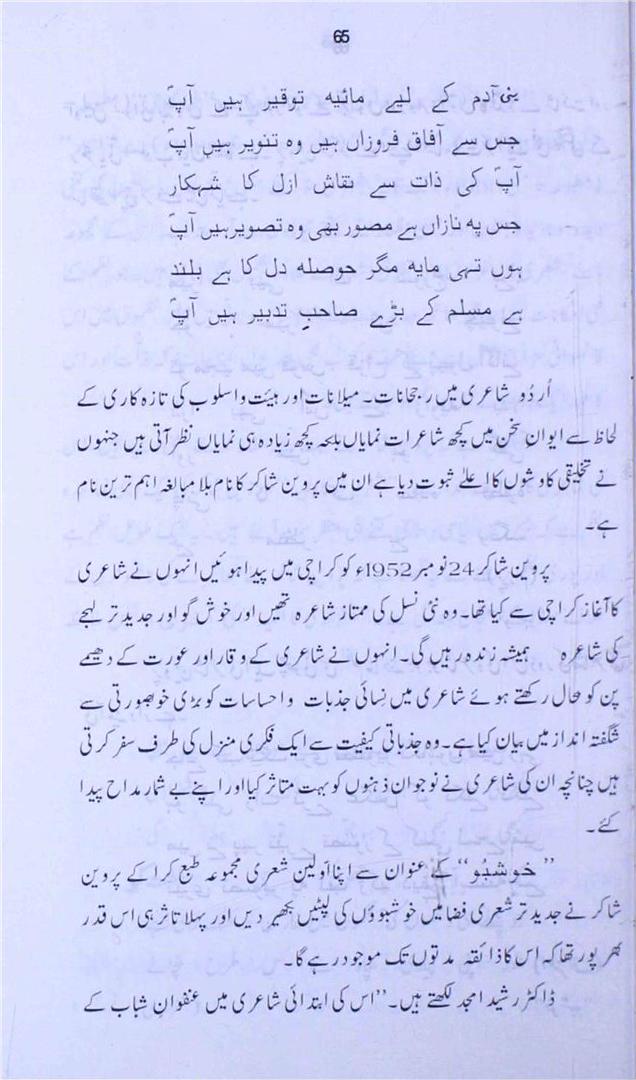 65
بنی آدم کے لیے مائیه توقیر ہیں آپؐ
جس سے آفاق فروزاں ہیں وہ تنویر ہیں آپؐ
آپؐ کی ذات سے نقاش ازل کا شہکار
جس په نازاں ہے مصور بھی وہ تصویر ہیں آپؐ
ہوں تہی مایه مگر حوصله دل کا ہے بلند
ہے مسلم کے بڑے صاحبِ تدبیر ہیں آپؐ
اُردُو شاعری میں رجحانات۔ میلانات اور ہیئت و اسلوب کی تازہ کاری کے
لحاظ سے ایوانِ سخن میں کچھ شاعرات نمایاں بلکہ کچھ زیادہ ہی نمایاں نظر آتی ہیں جنہوں
نے تخلیقی کاوشوں کا اعلےٰ ثبوت دیا ہے ان میں پروین شاکر کا نام بلا مبالغہ اہم ترین نام
ہے۔
پروین شاکر 24 نومبر 1952ء کو کراچی میں پیدا ہوئیں انہوں نے شاعری
کا آغاز کراچی سے کیا تھا۔ وہ نئی نسل کی ممتاز شاعرہ تھیں اور خوش گو اور جدید تر لہجے
کی شاعرہ ہمیشہ زندہ رہیں گی۔ انہوں نے شاعری کے وقار اور عورت کے دھیمے
پن کو بحال رکھتے ہوئے شاعری میں نِسائی جذبات و احساسات کو بڑی خوبصورتی سے
شگفتہ انداز میں بیان کیا ہے۔ وہ جذباتی کیفیت سے ایک فکری منزل کی طرف سفر کرتی
ہیں چنانچہ ان کی شاعری نے نوجوان ذہنوں کو بہت متاثر کیا اور اپنے بے شمار مداح پیدا
کئے۔
’’خوشبُو‘‘ کے عنوان سے اپنا اَولین شعری مجموعہ طبع کرا کے پروین
شاکر نے جدید تر شعری فضا میں خوشبوؤں کی لپٹیں بکھیر دیں اور پہلا تاثر ہی اس قدر
بھرپور تھا کہ اس کا ذائقہ مدتوں تک موجود رہے گا۔
ڈاکٹر رشید امجد لکھتے ہیں۔ ’’اس کی ابتدائی شاعری میں عنفوانِ شباب کے